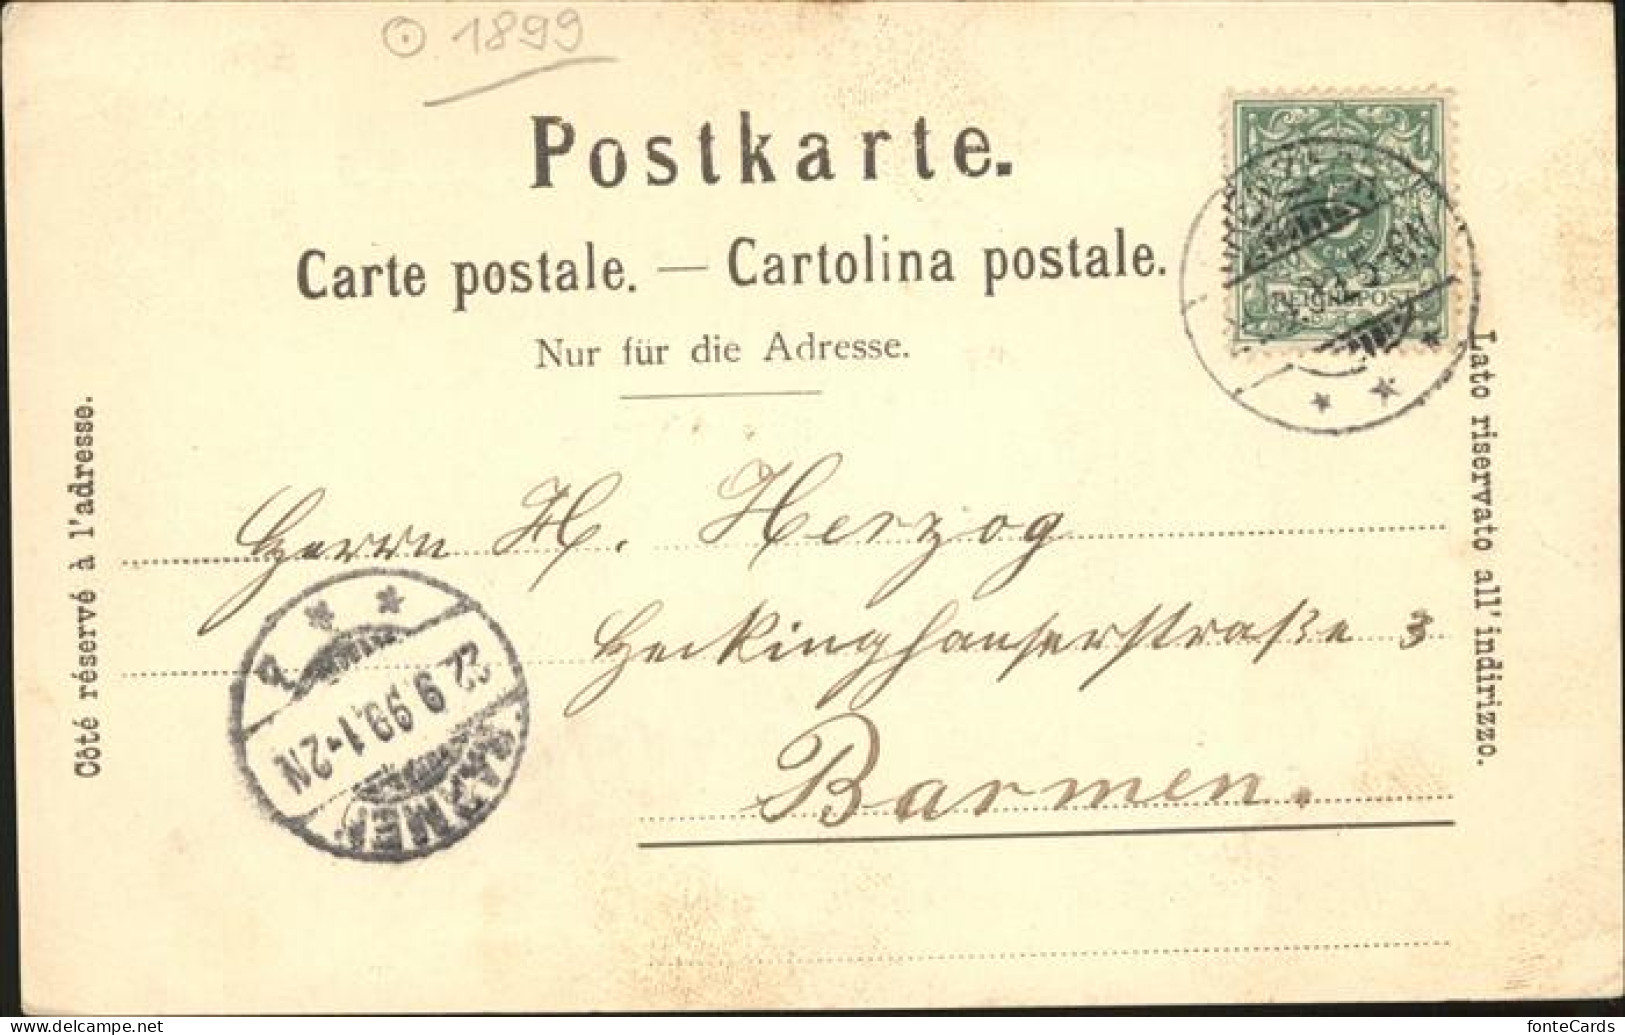 1899
Postkarte.
Carte postale. — Cartolina postale.
Nur für die Adresse.
Côté réservé à l'adresse.
Lato riservato all' indirizzo.
5
PFENNIG
REICHSPOST
5-6N
Herrn H. Herzog
Heckinghauserstraße 3
Barmen.
BARMEN
22 9.99.1-2N
delcampe.net
fonteCards